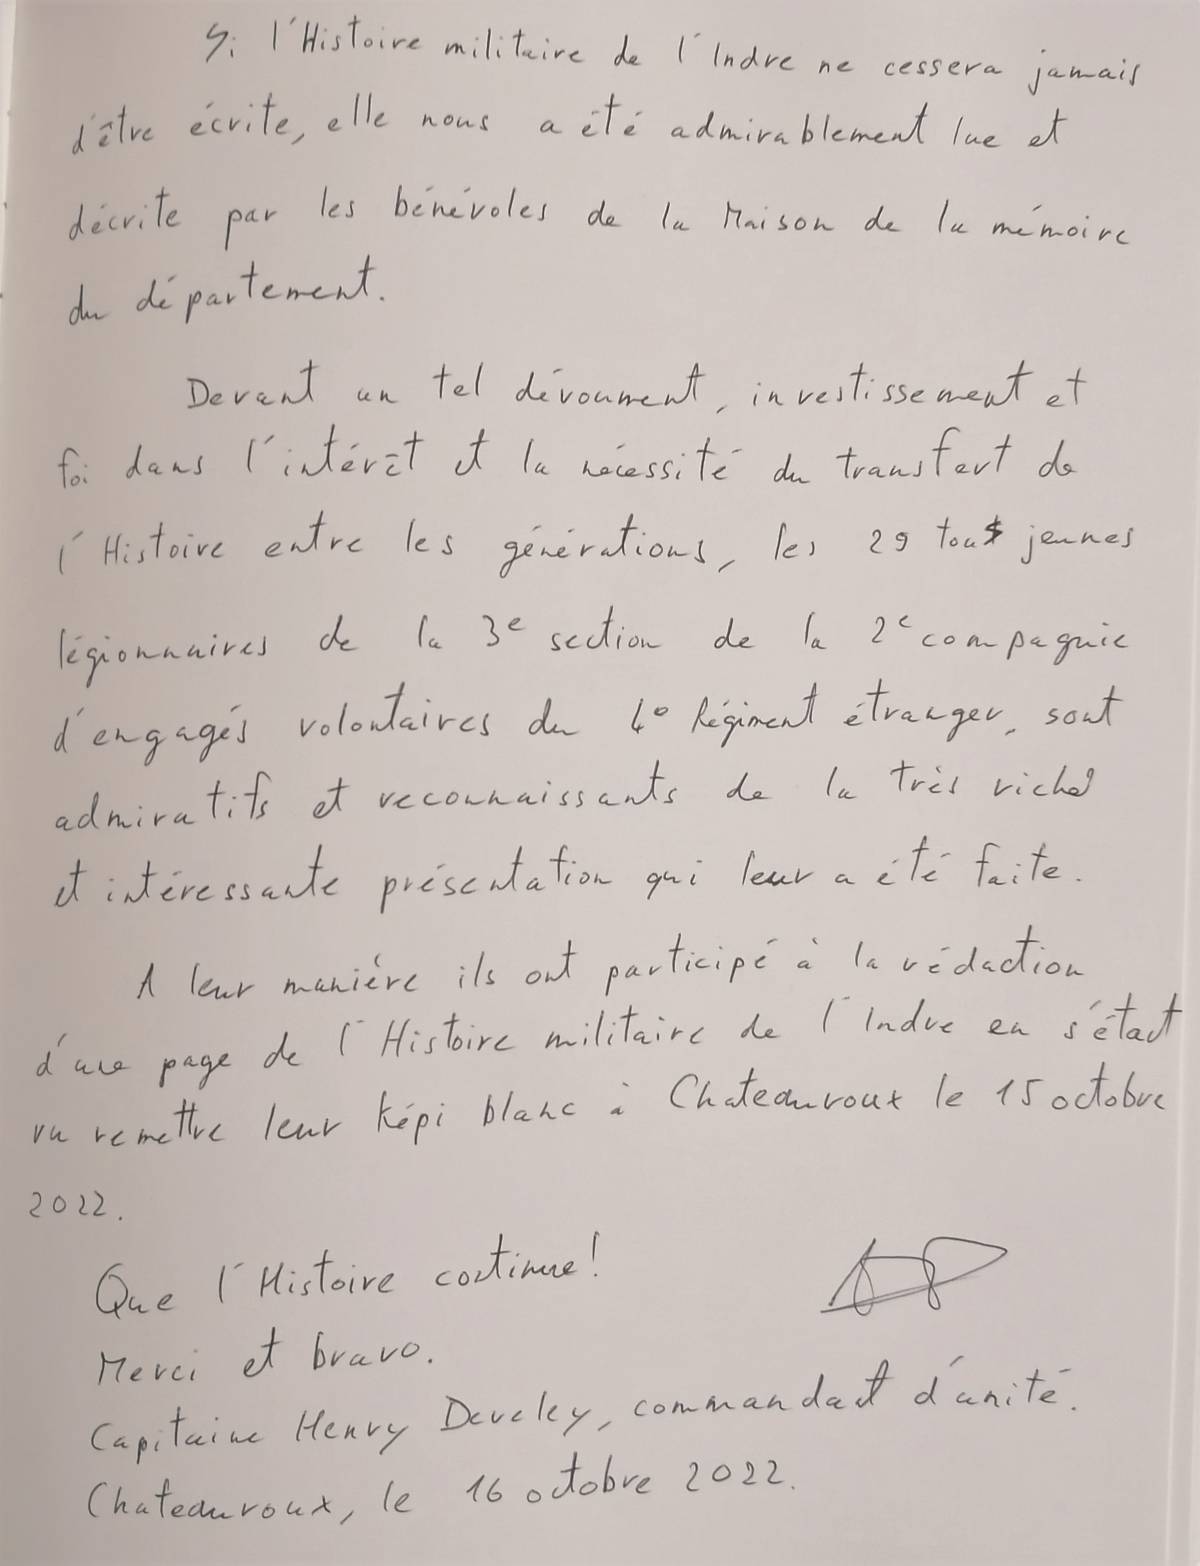 Si l'Histoire militaire de l'Indre ne cessera jamais
d'être écrite, elle nous a été admirablement lue et
décrite par les bénévoles de la Maison de la mémoire
du département.
Devant un tel dévoument, investissement et
foi dans l'intérêt et la nécessité du transfert de
l'Histoire entre les générations, les 29 tous jeunes
légionnaires de la 3e section de la 2e compagnie
d'engagés volontaires du 4° Régiment étranger, sont
admiratifs et reconnaissants de la très riche
et intéressante présentation qui leur a été faite.
A leur manière ils ont participé à la rédaction
d'une page de l'Histoire militaire de l'Indre en s'étant
vu remettre leur képi blanc à Chateauroux le 15 octobre
2022.
Que l'Histoire continue!
Merci et bravo.
Capitaine Henry Develey, commandant d'unité.
Chateauroux, le 16 octobre 2022.